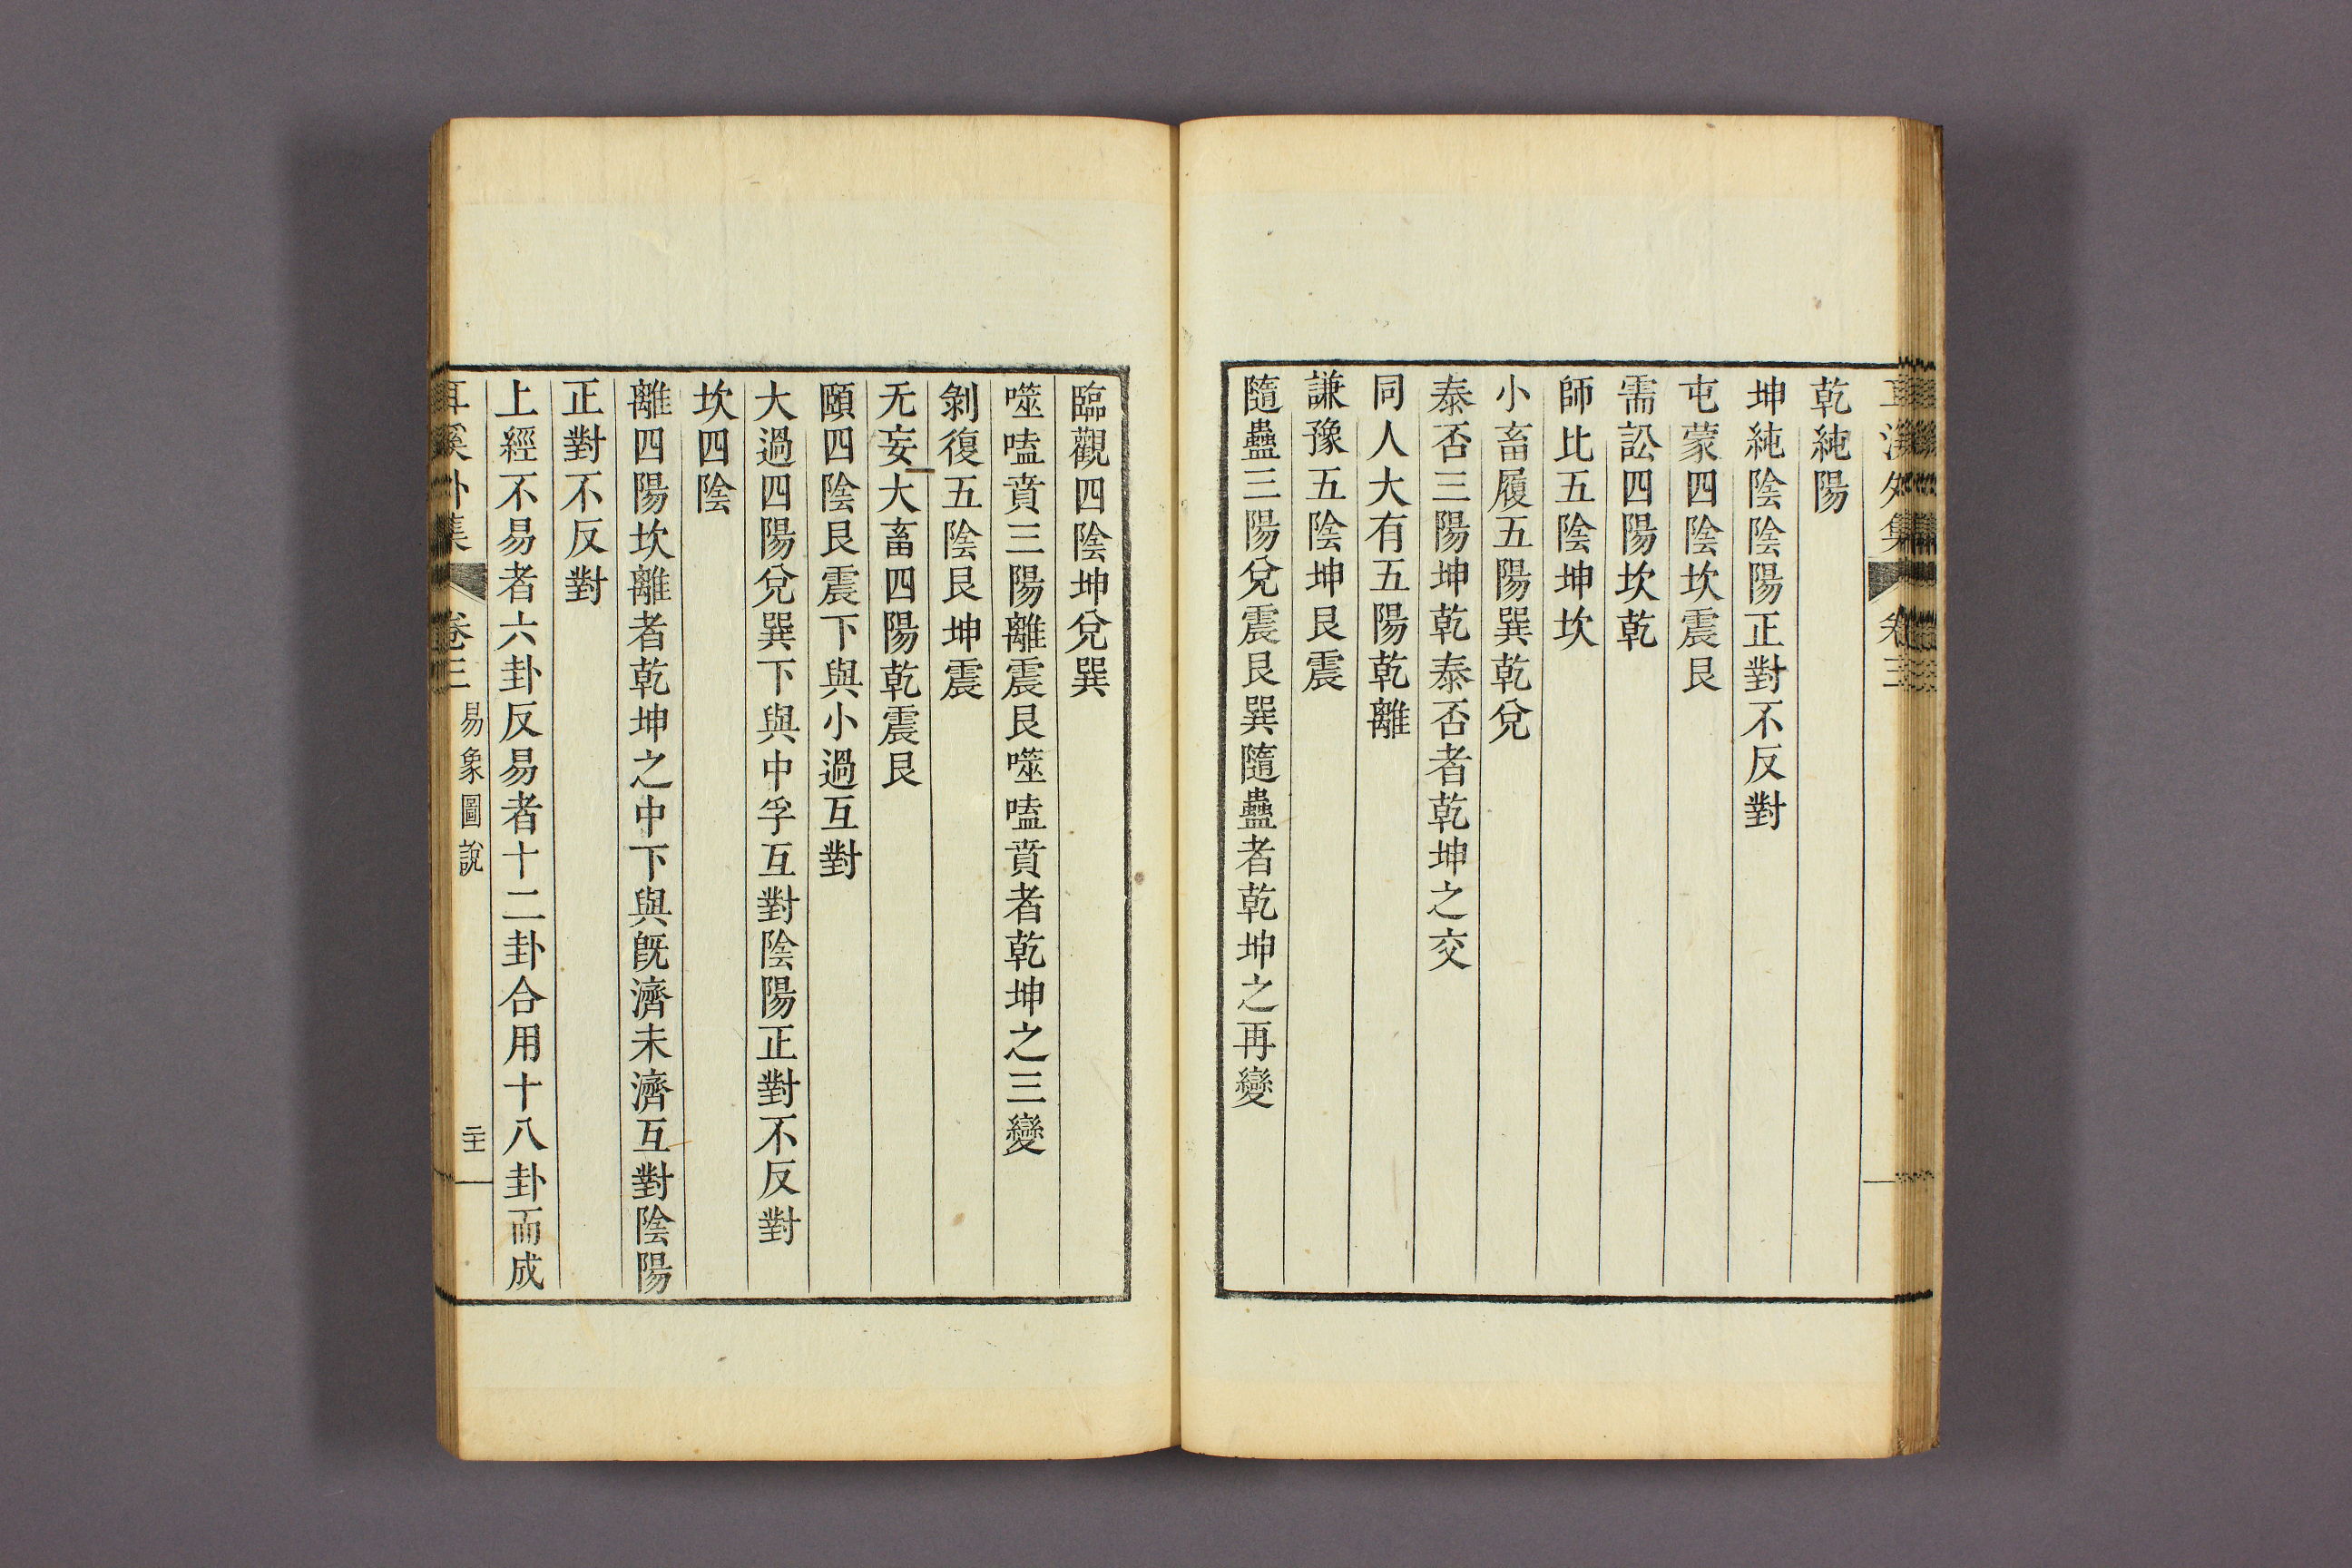 耳溪外集 卷三
乾純陽
坤純陰陰陽正對不反對
屯蒙四陰坎震艮
需訟四陽坎乾
師比五陰坤坎
小畜履五陽巽乾兌
泰否三陽坤乾泰否者乾坤之交
同人大有五陽乾離
謙豫五陰坤艮震
隨蠱三陽兌震艮巽隨蠱者乾坤之再變
臨觀四陰坤兌巽
噬嗑賁三陽離震艮噬嗑賁者乾坤之三變
剝復五陰艮坤震
无妄大畜四陽乾震艮
頤四陰艮震下與小過互對
大過四陽兌巽下與中孚互對陰陽正對不反對
坎四陰
離四陽坎離者乾坤之中下與旣濟未濟互對陰陽
正對不反對
上經不易者六卦反易者十二卦合用十八卦而成
耳溪外集 卷三 易象圖說